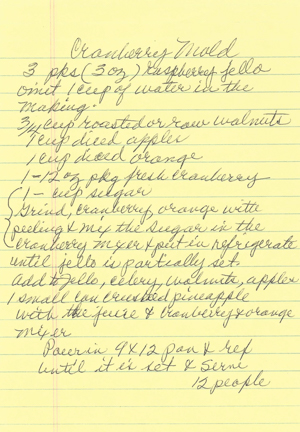 Cranberry Mold
3 pks (3 oz) Raspberry jello
omit 1 cup of water in the
making.
3/4 cup roasted or raw walnuts
1 cup diced apples
1 cup diced orange
1-12 oz pkg fresh cranberry
1- cup sugar
Grind, cranberry, orange with
peeling & mix the sugar in the
cranberry mixer & put in refrigerate
until jello is partially set.
Add to jello, celery, walnuts, apples
1 small can crushed pineapple
with the juice & cranberry & orange
mixer
Pour in 9X12 pan & ref
until it is set & serve
12 people